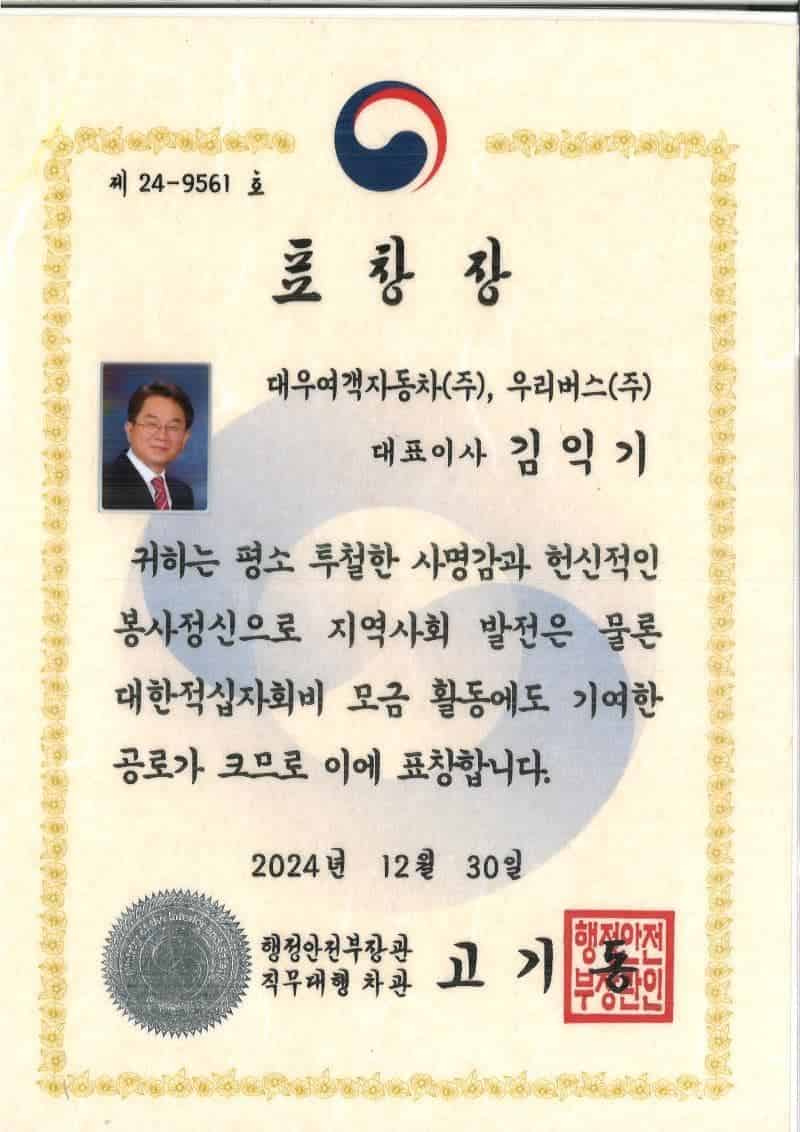 제 24-9561 호
표 창 장
대우여객자동차(주), 우리버스(주)
대표이사 김 익 기
귀하는 평소 투철한 사명감과 헌신적인
봉사정신으로 지역사회 발전은 물론
대한적십자회비 모금 활동에도 기여한
공로가 크므로 이에 표창합니다.
2024년 12월 30일
행정안전부장관
직무대행 차관 고 기 동
행정안전
부장관인